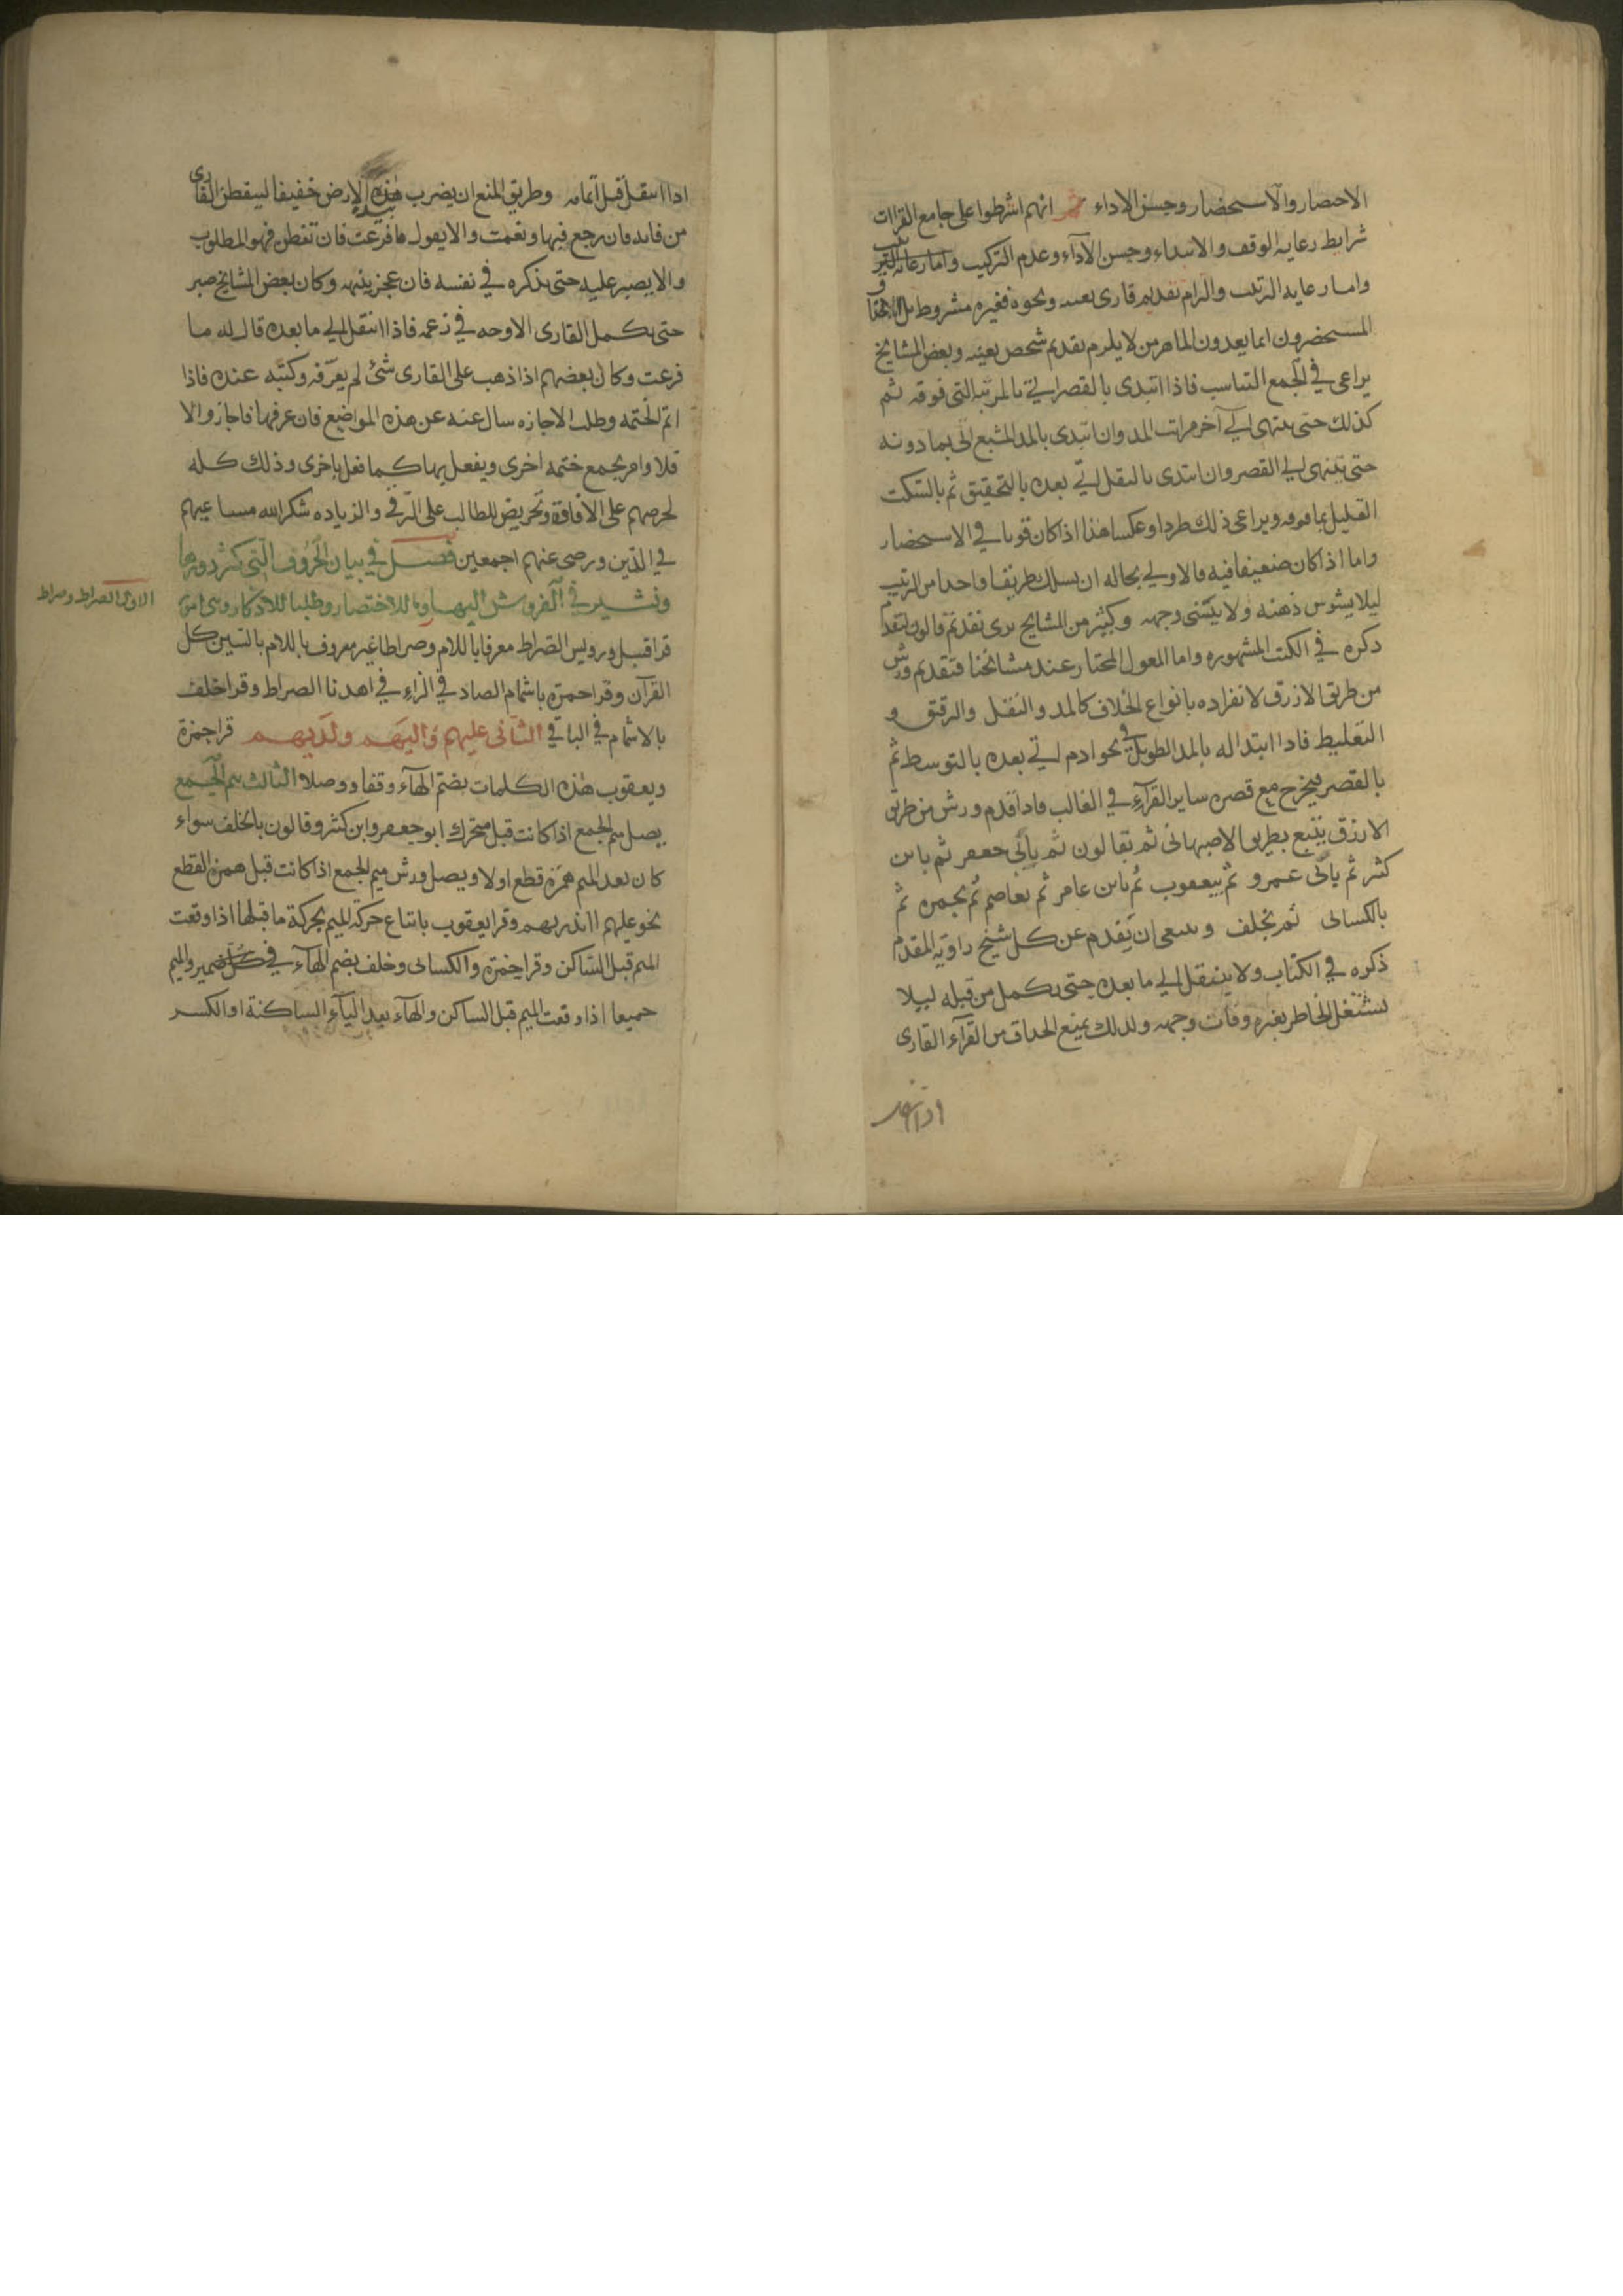 الاحصار والاستحضار وحسن الاداء ثم انهم اشرطوا على جامع القراات
شرايط رعايه الوقف والابتداء وحسن الآداء وعدم التركيب واما رعايه
واما رعايه الرتيب والرام تقديم قارى بعينه ونحوه فغيره مشروط بل
المستحضرون انما يعدون الماهر من لا يلرم تقديم شخص بعينه وبعض المشايخ
يراعى في الجمع التناسب فاذا ابتدى بالقصر اتى بالمرتبه التى فوقه ثم
كذلك حتى ينتهى الى آخر مراتب المد وان ابتدى بالمد المشبع اتى بما دونه
حتى ينتهى الى القصر وان ابتدى بالنقل اتى بعده بالتحقيق ثم بالسّكت
القليل بما فوقه ويراعى ذلك طردا وعكسا هذا اذا كان قويا في الاستحضار
واما اذا كان ضعيفا فيه فالاولى بحاله ان يسلك طريقا واحدا من الرتيب
ليلا يشوس ذهنه ولا وجهه وكثير من المشايخ يرى تقديم قالون لتقدم
ذكره في الكتب المشهوره واما المعول المختار عند مشائخنا فتقديم ورش
من طريق الازرق لانفراده بانواع الخلاف كالمد والنقل والرقيق و
التغليط فاذا ابتدا له بالمد الطويل في نحو ادم اتى بعده بالتوسط ثم
بالقصر فيخرج مع قصره ساير القرآءِ في الغالب فاذا قدم ورش من طريق
الارزق يتبع بطريق الاصبهانى ثم بقالون ثم بابى جعفر ثم بابن
كثر ثم بابى عمرو ثم بيعقوب ثم بابن عامر ثم بعاصم ثم بحمزه ثم
بالكسائى ثم بخلف وينبغى ان يقدم عن كل شيخ راويه المقدم
ذكره في الكتاب ولا ينتقل الى ما بعده حتى يكمل من قبله ليلا
يشتغل الخاطر بغيره وفات وجهه ولذلك يمنع الحذاق من القرآء القارى
اذا انتقل
اذا انتقل قبل اتمامه وطريق المنع ان يضرب بيده الارض خفيفا ليتفطن القارى
من فاته فان رجع فيها ونعمت والا يقول ما فرغت فان تفطن فهو المطلوب
والا يصبر عليه حتى يذكره في نفسه فان عجز ينبهه وكان بعض المشايخ صبر
حتى يكمل القارى الاوجه في زعمه فاذا انتقل الى ما بعده قال له ما
فرغت وكان بعضهم اذا ذهب على القارى شئ لم يعرّفه وكتبه عنده فاذا
اتم الختمه وطلب الاجازه سال عنه عن هذه المواضيع فان عرفها فاجاز والا
فلا وامر بجمع ختمه اخرى ويفعل بها كما فعل باخرى وذلك كله
لحرصهم على الافاقة وتحريض للطالب على الترقي والزياده شكر الله مساعيهم
في الدّين ورضى عنهم اجمعين فصل في بيان الحُروف الّتى كثر دورها
ونشير في الفروش اليها للاختصار وطلبا للاذكار
الاول الصراط وصراط
قرا قنبل ورويس الصّراط معرفا باللام وصراطا غير معروف باللام بالسّين كل
القرآن وقرا حمزة باشمام الصاد في الزاءِ في اهدنا الصراط وقرا خلف
بالاشمام في الباقي الثانى عليهم واليهم ولديهم قرا حمزة
ويعقوب هذه الكلمات بضم الهآء وقفا ووصلا الثالث ميم الجمع
يصل ميم الجمع اذا كانت قبل متحرك ابو جعفر وابن كثير وقالون بالخلف سواء
كان بعد الميم همزة قطع اولا ويصل ورش ميم الجمع اذا كانت قبل همزة القطع
نحو عليهم اانذرتهم وقرا يعقوب باتباع حركة الميم بحركة ما قبلها اذا وقعت
الميم قبل السّاكن وقرا حمزة والكسائى وخلف بضم الهآء في كل ضمير والميم
جميعا اذا وقعت الميم قبل الساكن والهآء بعد اليآء الساكنة او الكسر